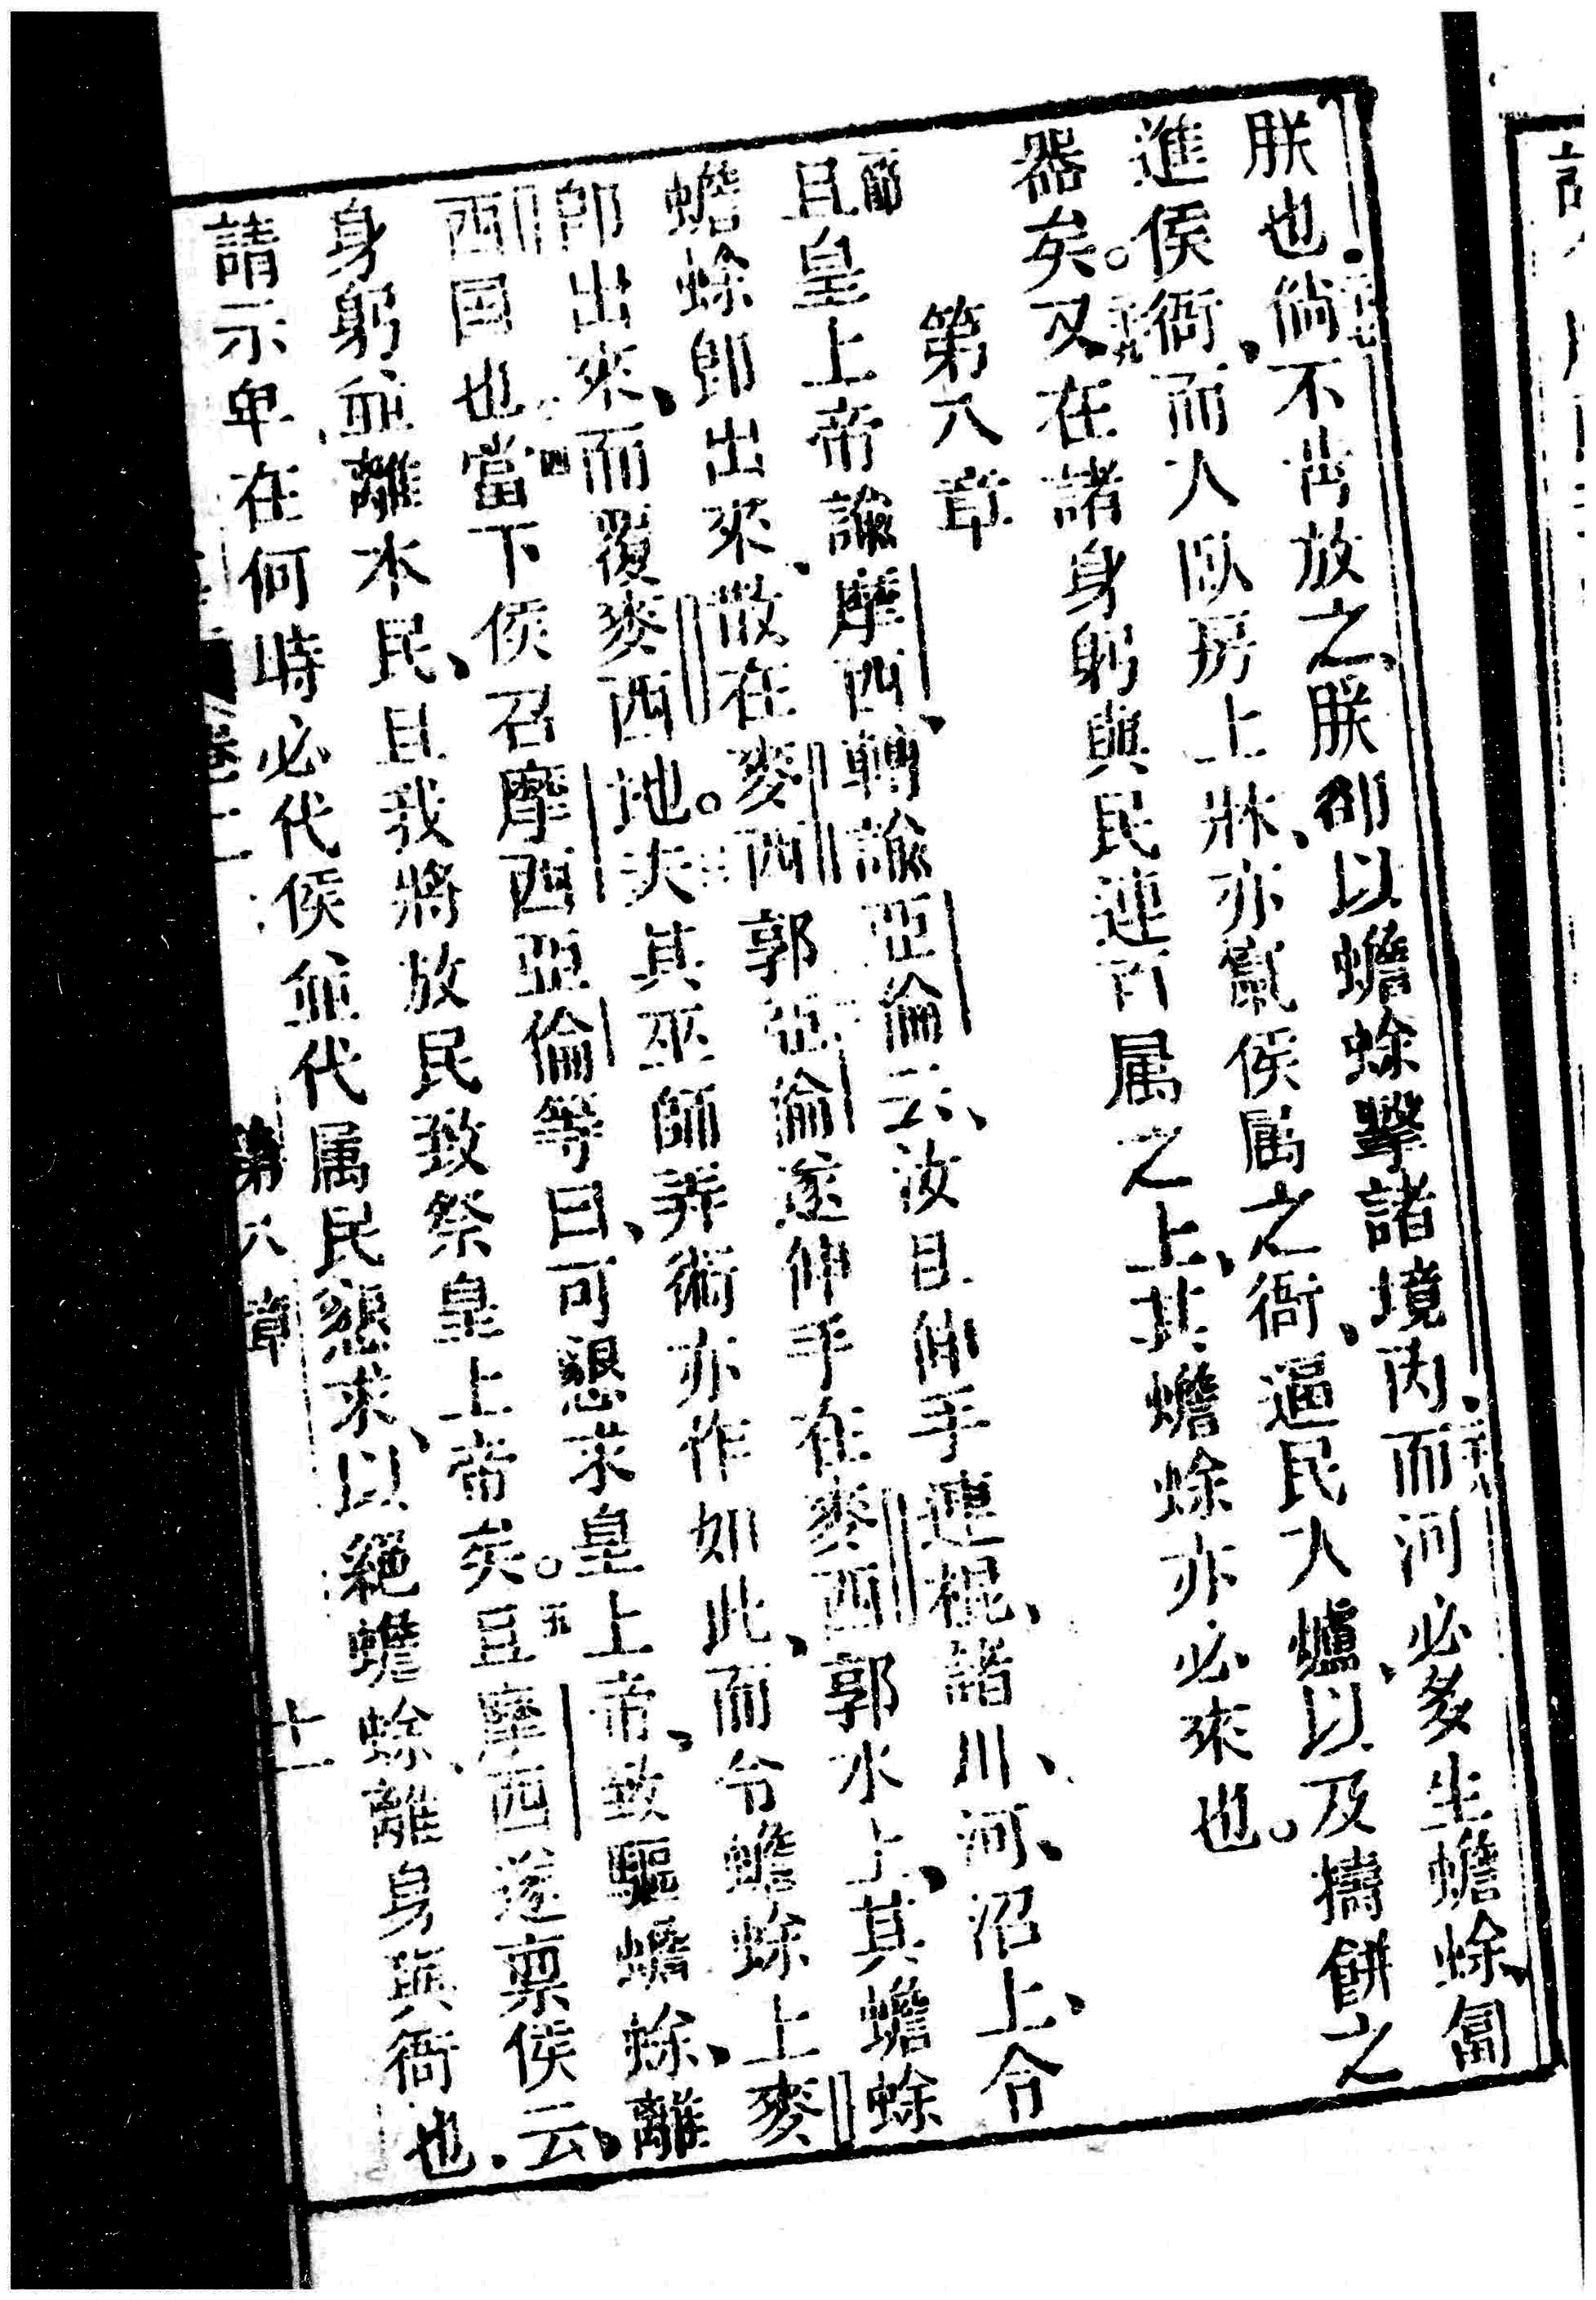 朕也倘不肯放之、朕卽以蟾蜍擊諸境内、而河必多生蟾蜍、匐
進侯衙、而人臥房上牀、亦竄侯属之衙、逼民人爐、以及擣餅之
器矣。又在諸身躬與民連百属之上、其蟾蜍亦必來也。
第八章
且皇上帝諭摩西、轉諭亞倫云、汝且伸手連棍、諸川、河、沼上、令
蟾蜍卽出來、散在麥西郭亞倫遂伸手在麥西郭水上、其蟾蜍
卽出來、而覆麥西地。夫其巫師弄術亦作如此、而令蟾蜍上麥
西国也。當下侯召摩西亞倫等曰、可懇求皇上帝、致驅蟾蜍、離
身躬、並離本民、且我將放民致祭皇上帝矣。且摩西遂禀侯云、
請示卑在何時必代侯並代属民懇求、以絕蟾蜍離身與衙也.
卷二
第八章
十一